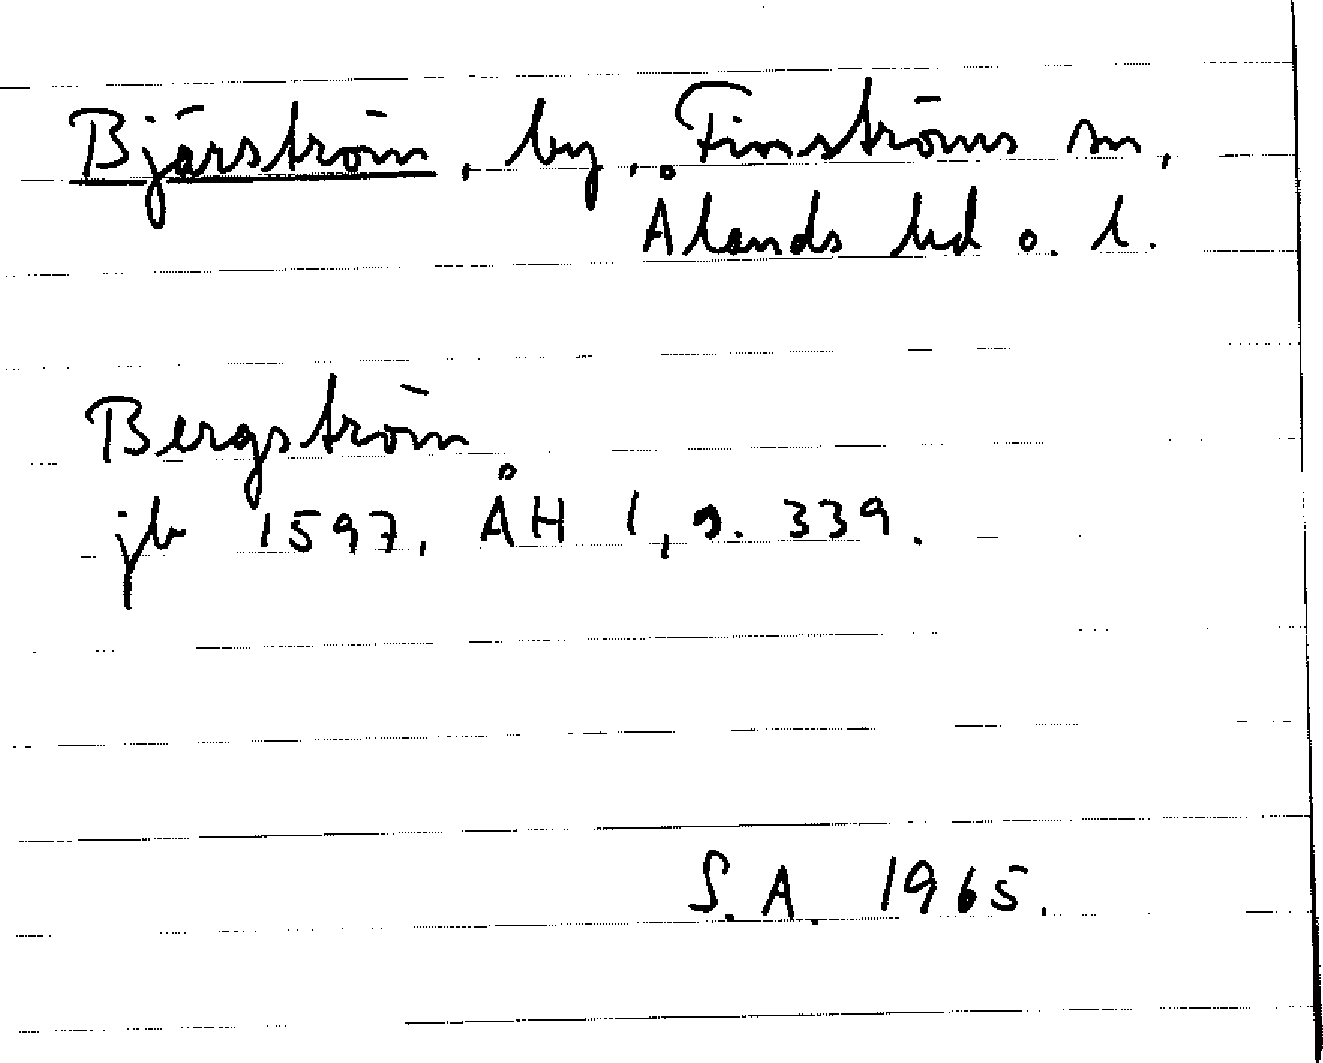 Bjärström, by, Finströms sn,
Ålands hd o. l.
Bergström
jb 1597, ÅH 1, s. 339.
S.A. 1965.